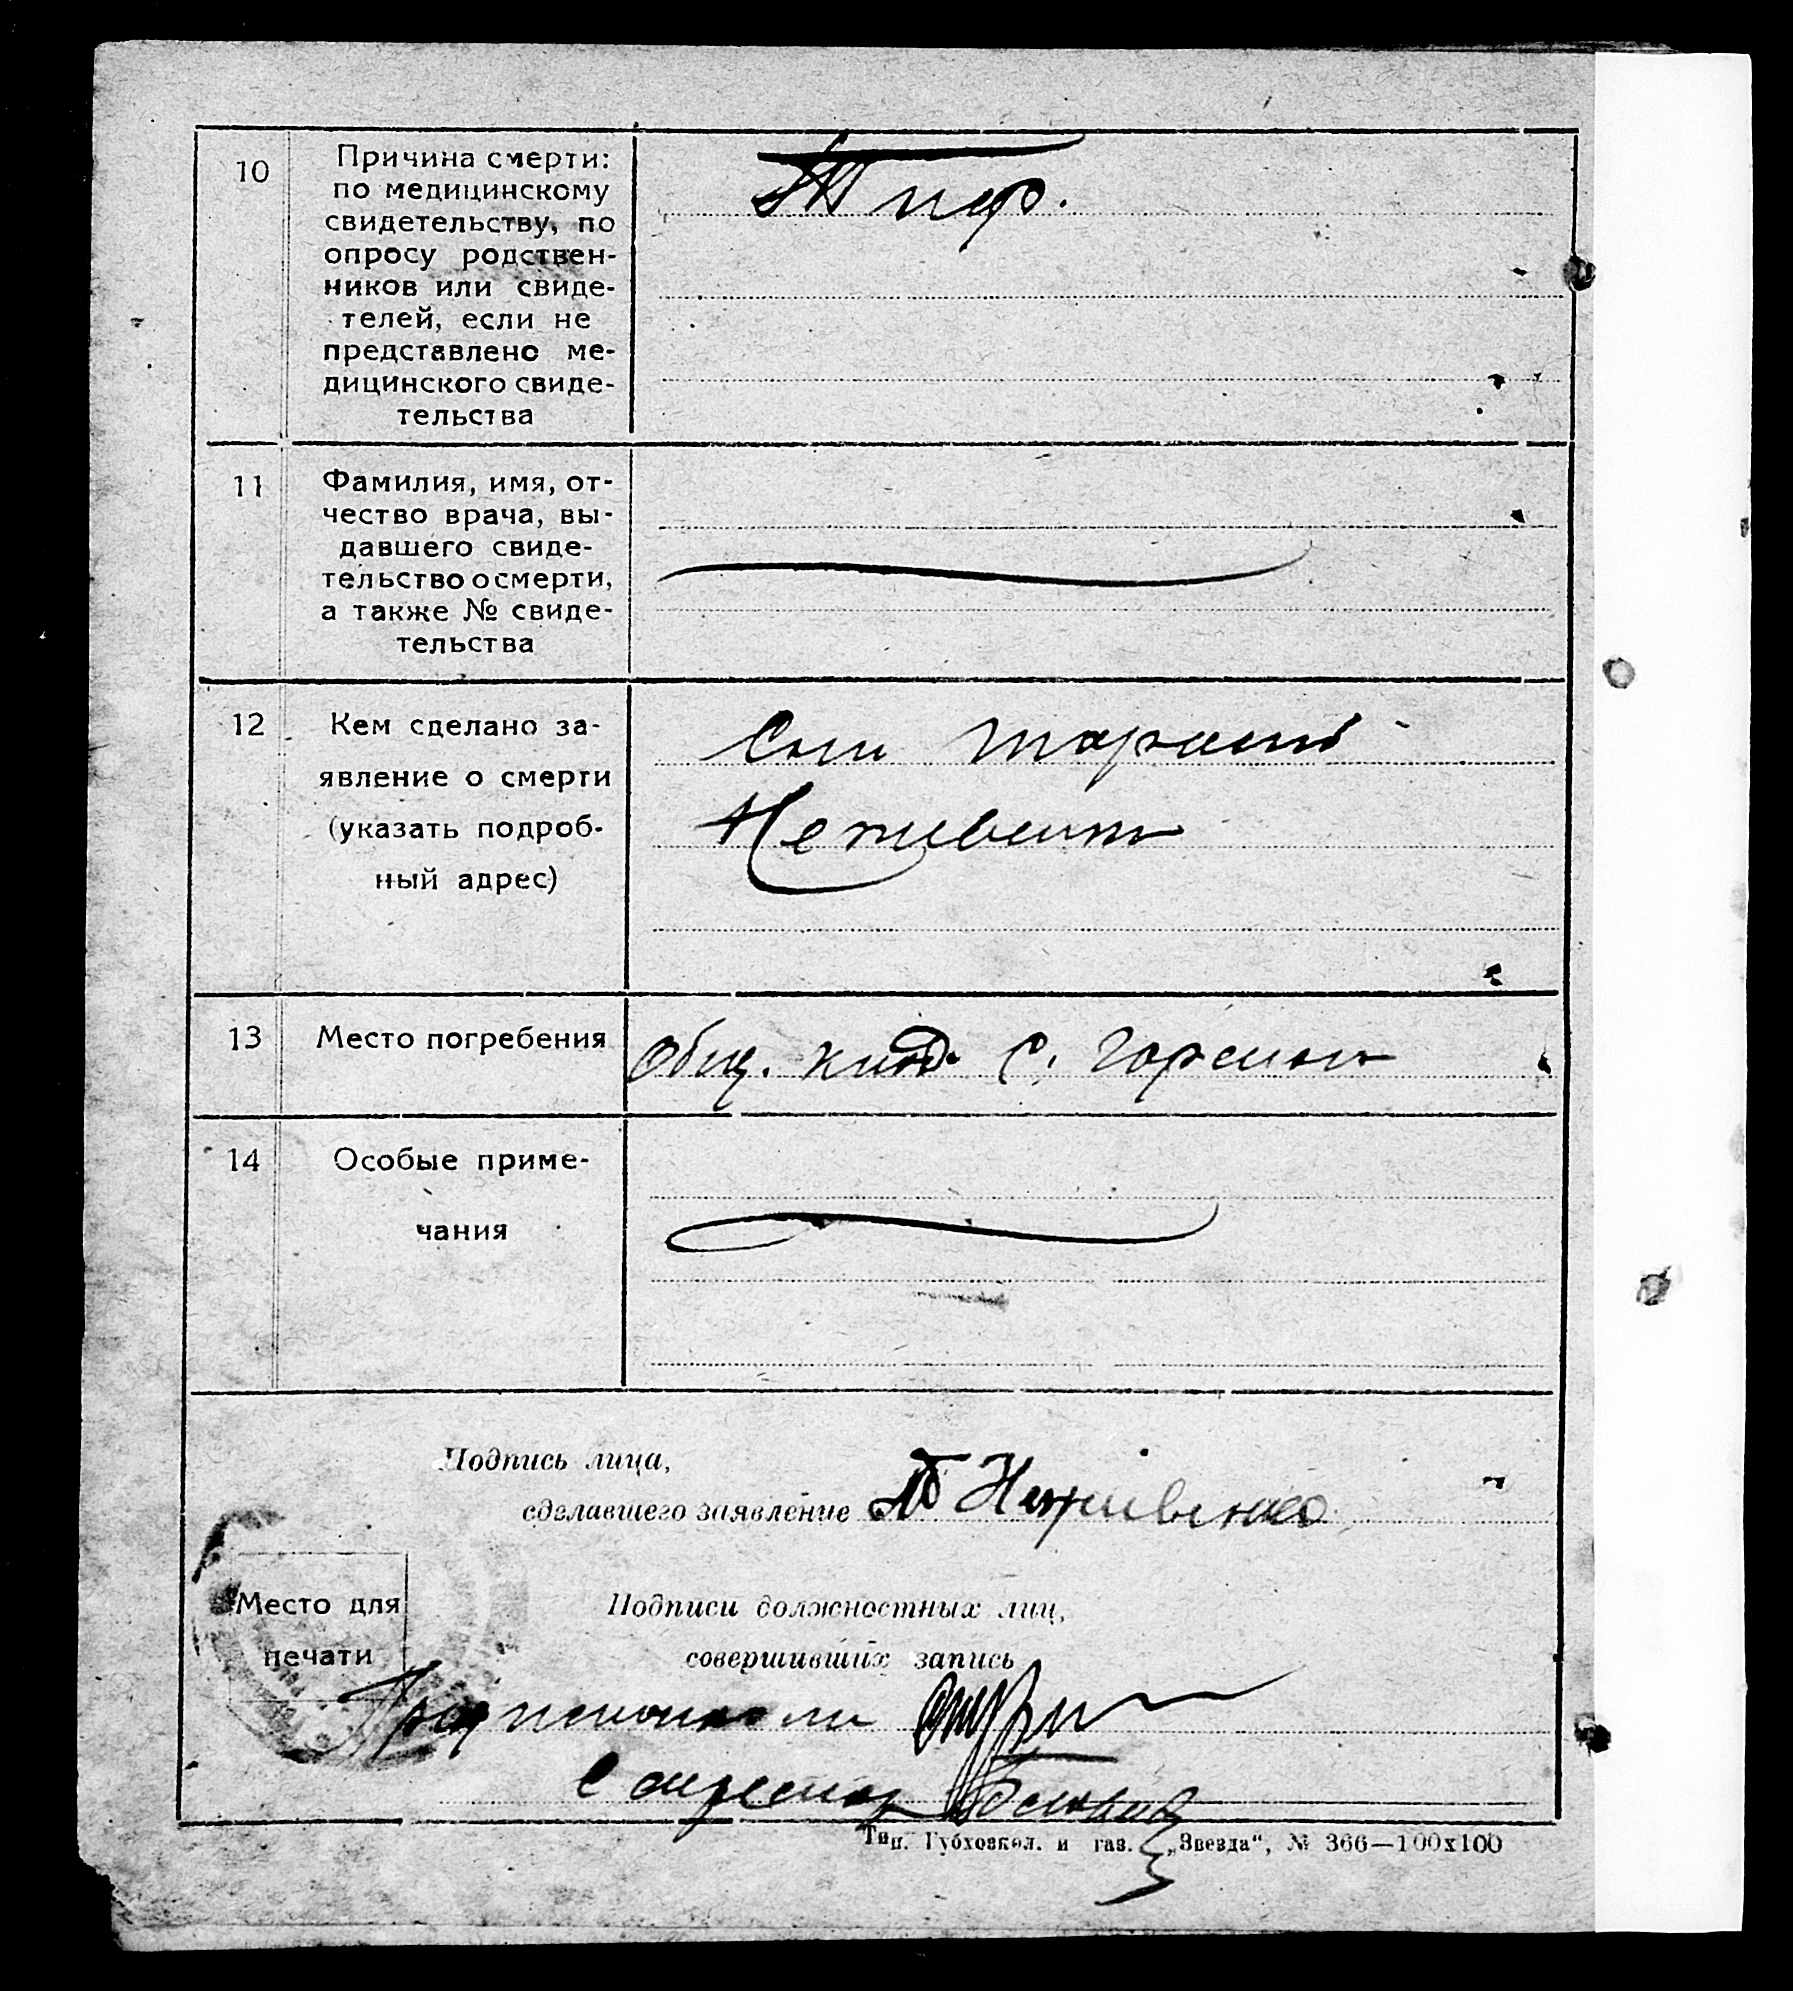 10
Причина смерти:
по медицинскому
свидетельству, по
опросу родствен-
ников или свиде-
телей, если не
представлено ме-
дицинского свиде-
тельства
Тиф.
11
Фамилия, имя, от-
чество врача, вы-
давшего свиде-
тельство о смерти,
а также № свиде-
тельства
12
Кем сделано за-
явление о смерти
(указать подроб-
ный адрес)
Сын
13
Место погребения
Общ. клад. С.
14
Особые приме-
чания
Подпись лица,
сделавшего заявление
Место для
печати
Подписи должностных лиц,
совершивших запись
Тип. Губхозкол. и газ. „Звезда“, № 366—100х100